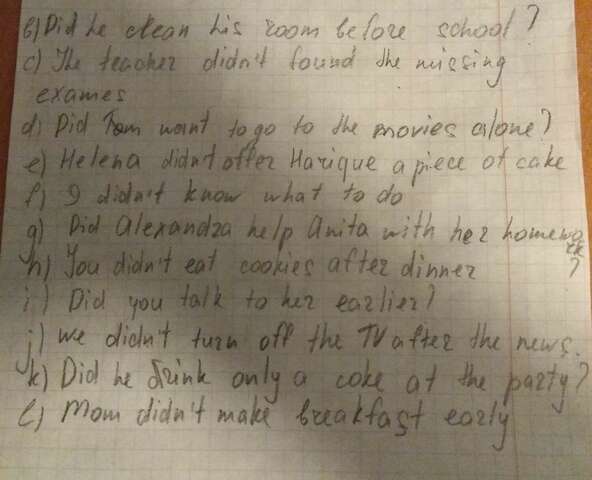 b) Did he clean his room before school?
c) The teacher didn't found the missing
exames
d) Did Tom want to go to the movies alone?
e) Helena didn't offer Harique a piece of cake
f) I didn't know what to do
g) Did Alexandra help Anita with her homewo
rk?
h) You didn't eat cookies after dinner
i) Did you talk to her earlier?
j) we didn't turn off the TV after the news.
k) Did he drink only a coke at the party?
l) Mom didn't make breakfast early